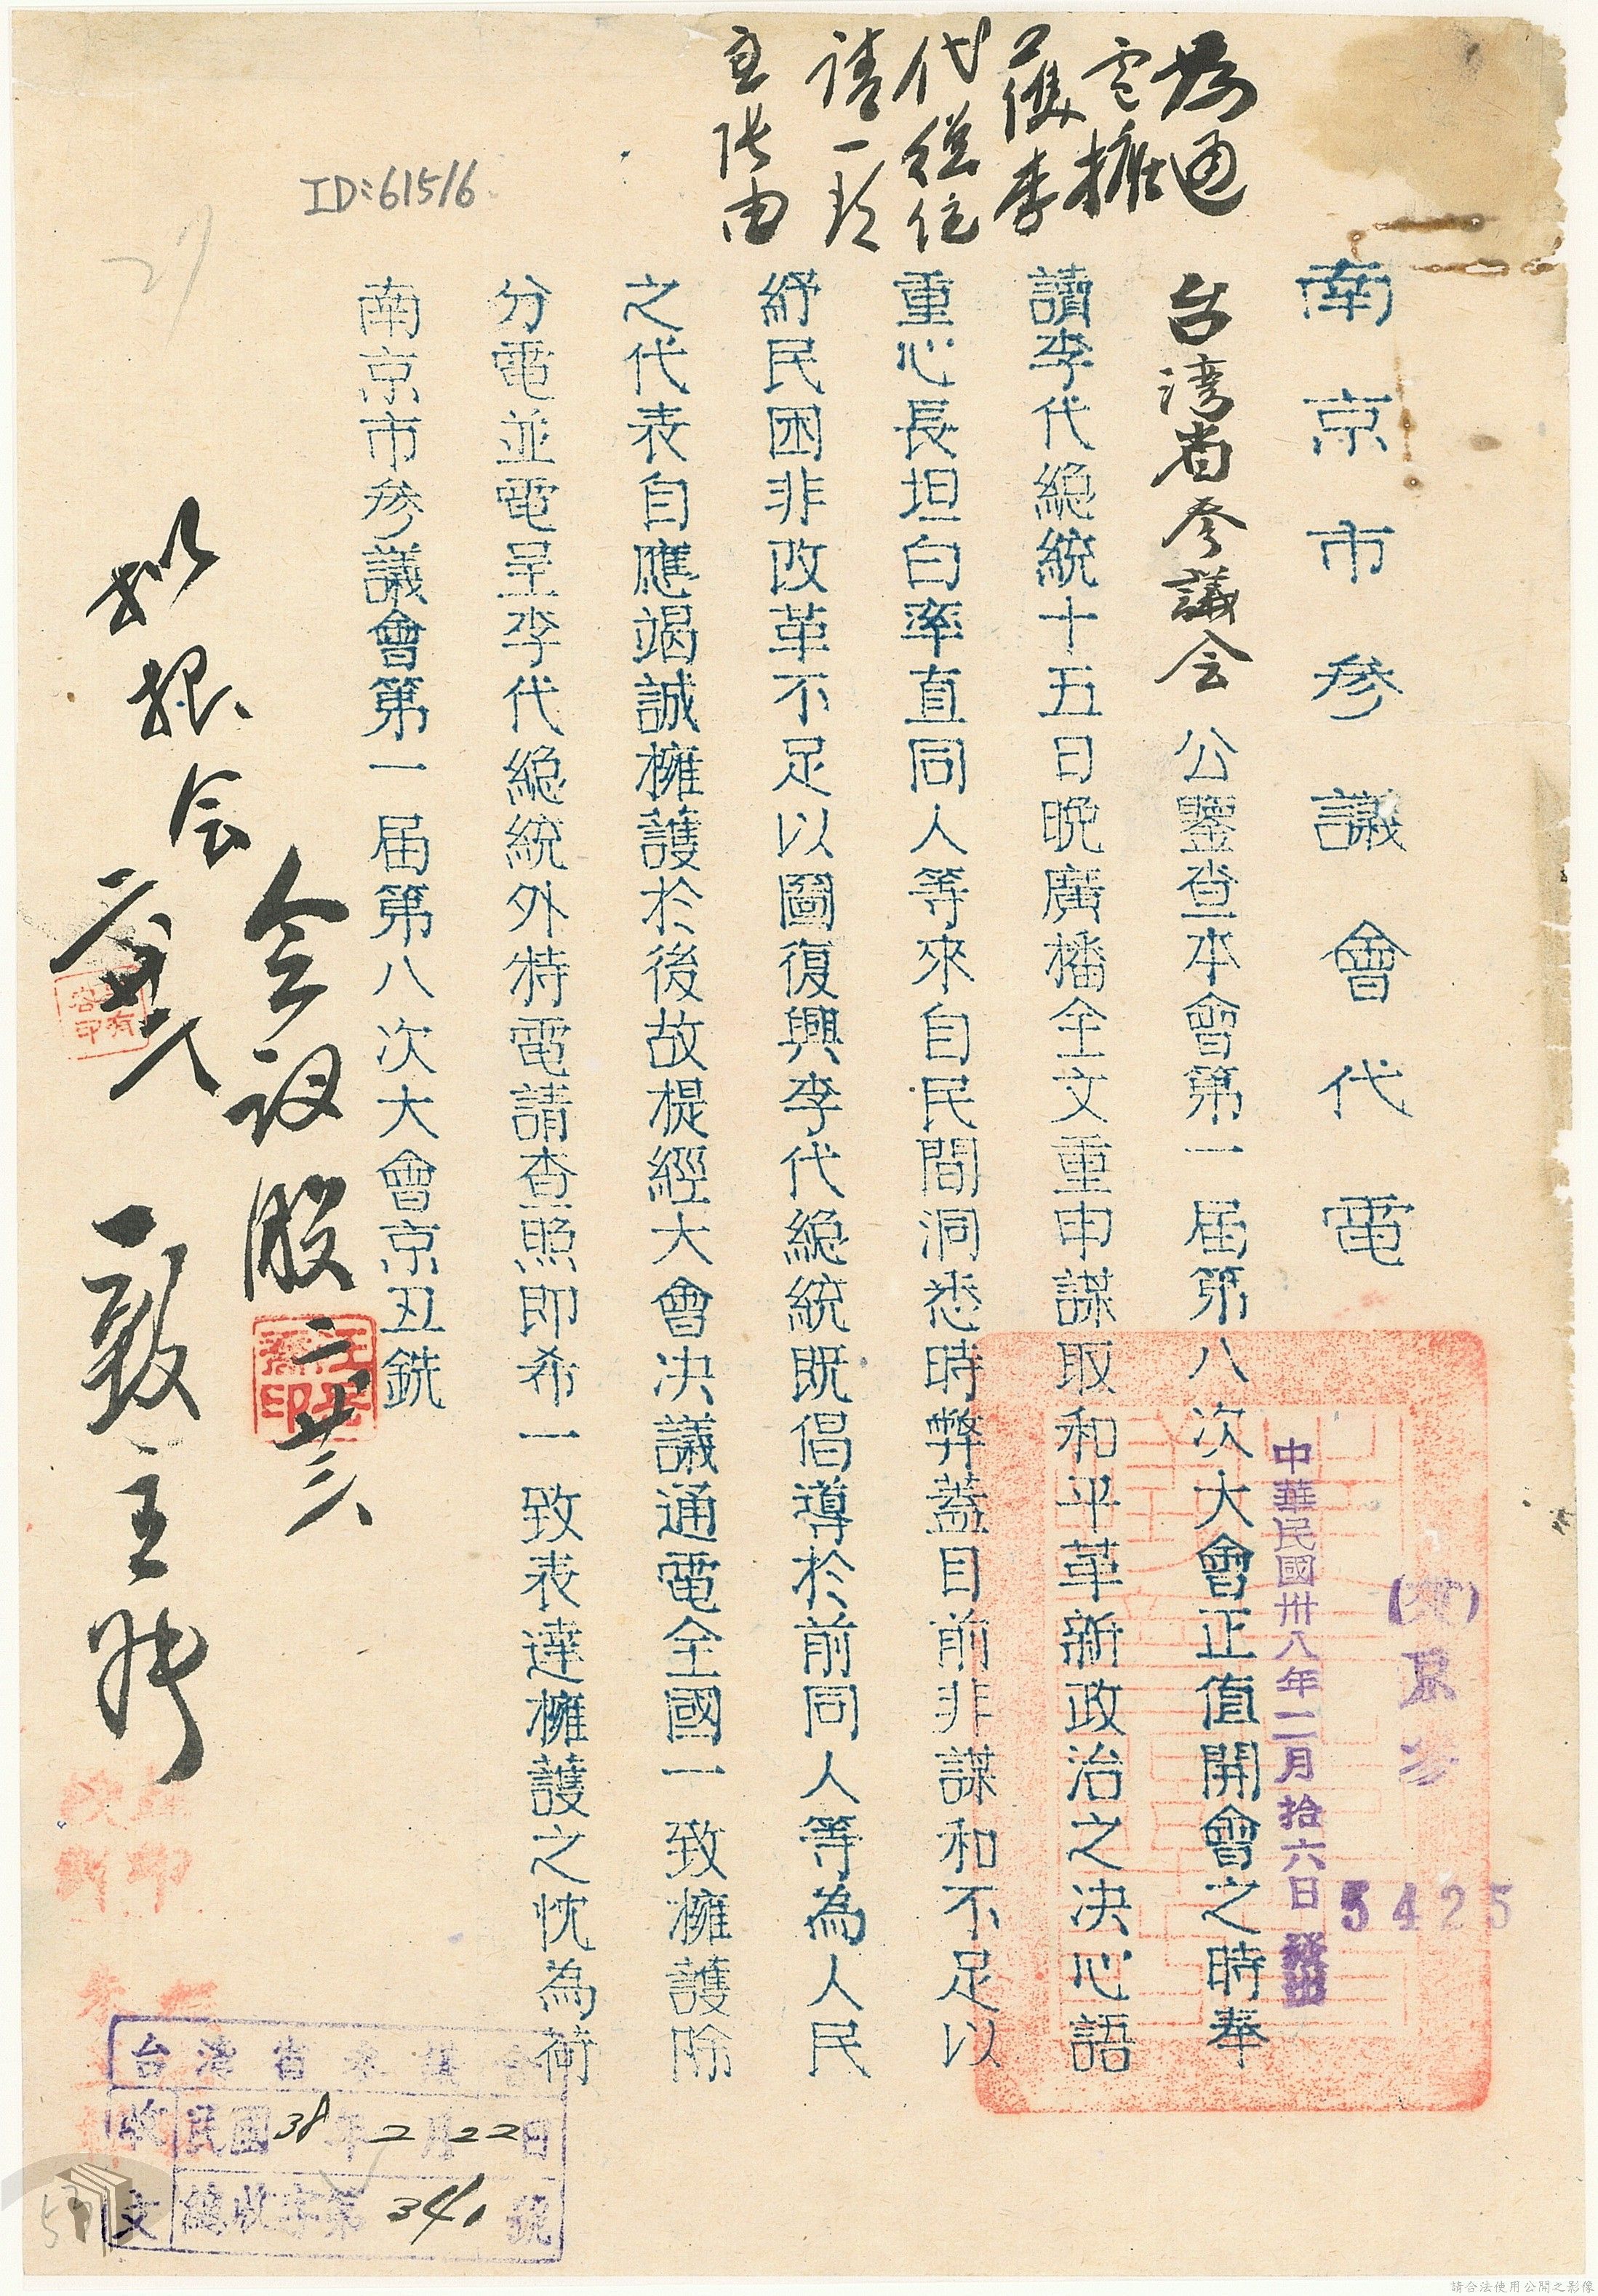 為通
電擁
護李
代總統
請一致
主張由
ID:61516
南京市參議會代電
台湾省参議会公鑒查本會第一屆第八次大會正值開會之時奉
讀李代總統十五日晚廣播全文重申謀取和平革新政治之决心語
重心長坦白率直同人等來自民間洞悉時弊蓋目前非謀和不足以
紓民困非改革不足以圖復興李代總統既倡導於前同人等為人民
之代表自應竭誠擁護於後故提經大會决議通電全國一致擁護除
分電並電呈李代總統外特電請查照即希一致表達擁護之忱為荷
南京市參議會第一屆第八次大會京丑銑
京參
5425
中華民國卅八年二月拾六日
發出
会议股
二廿三
拟报会
一致主张
台灣省參議會
收文
民國38年2月22日
總收字第341號
請合法使用公開之影像